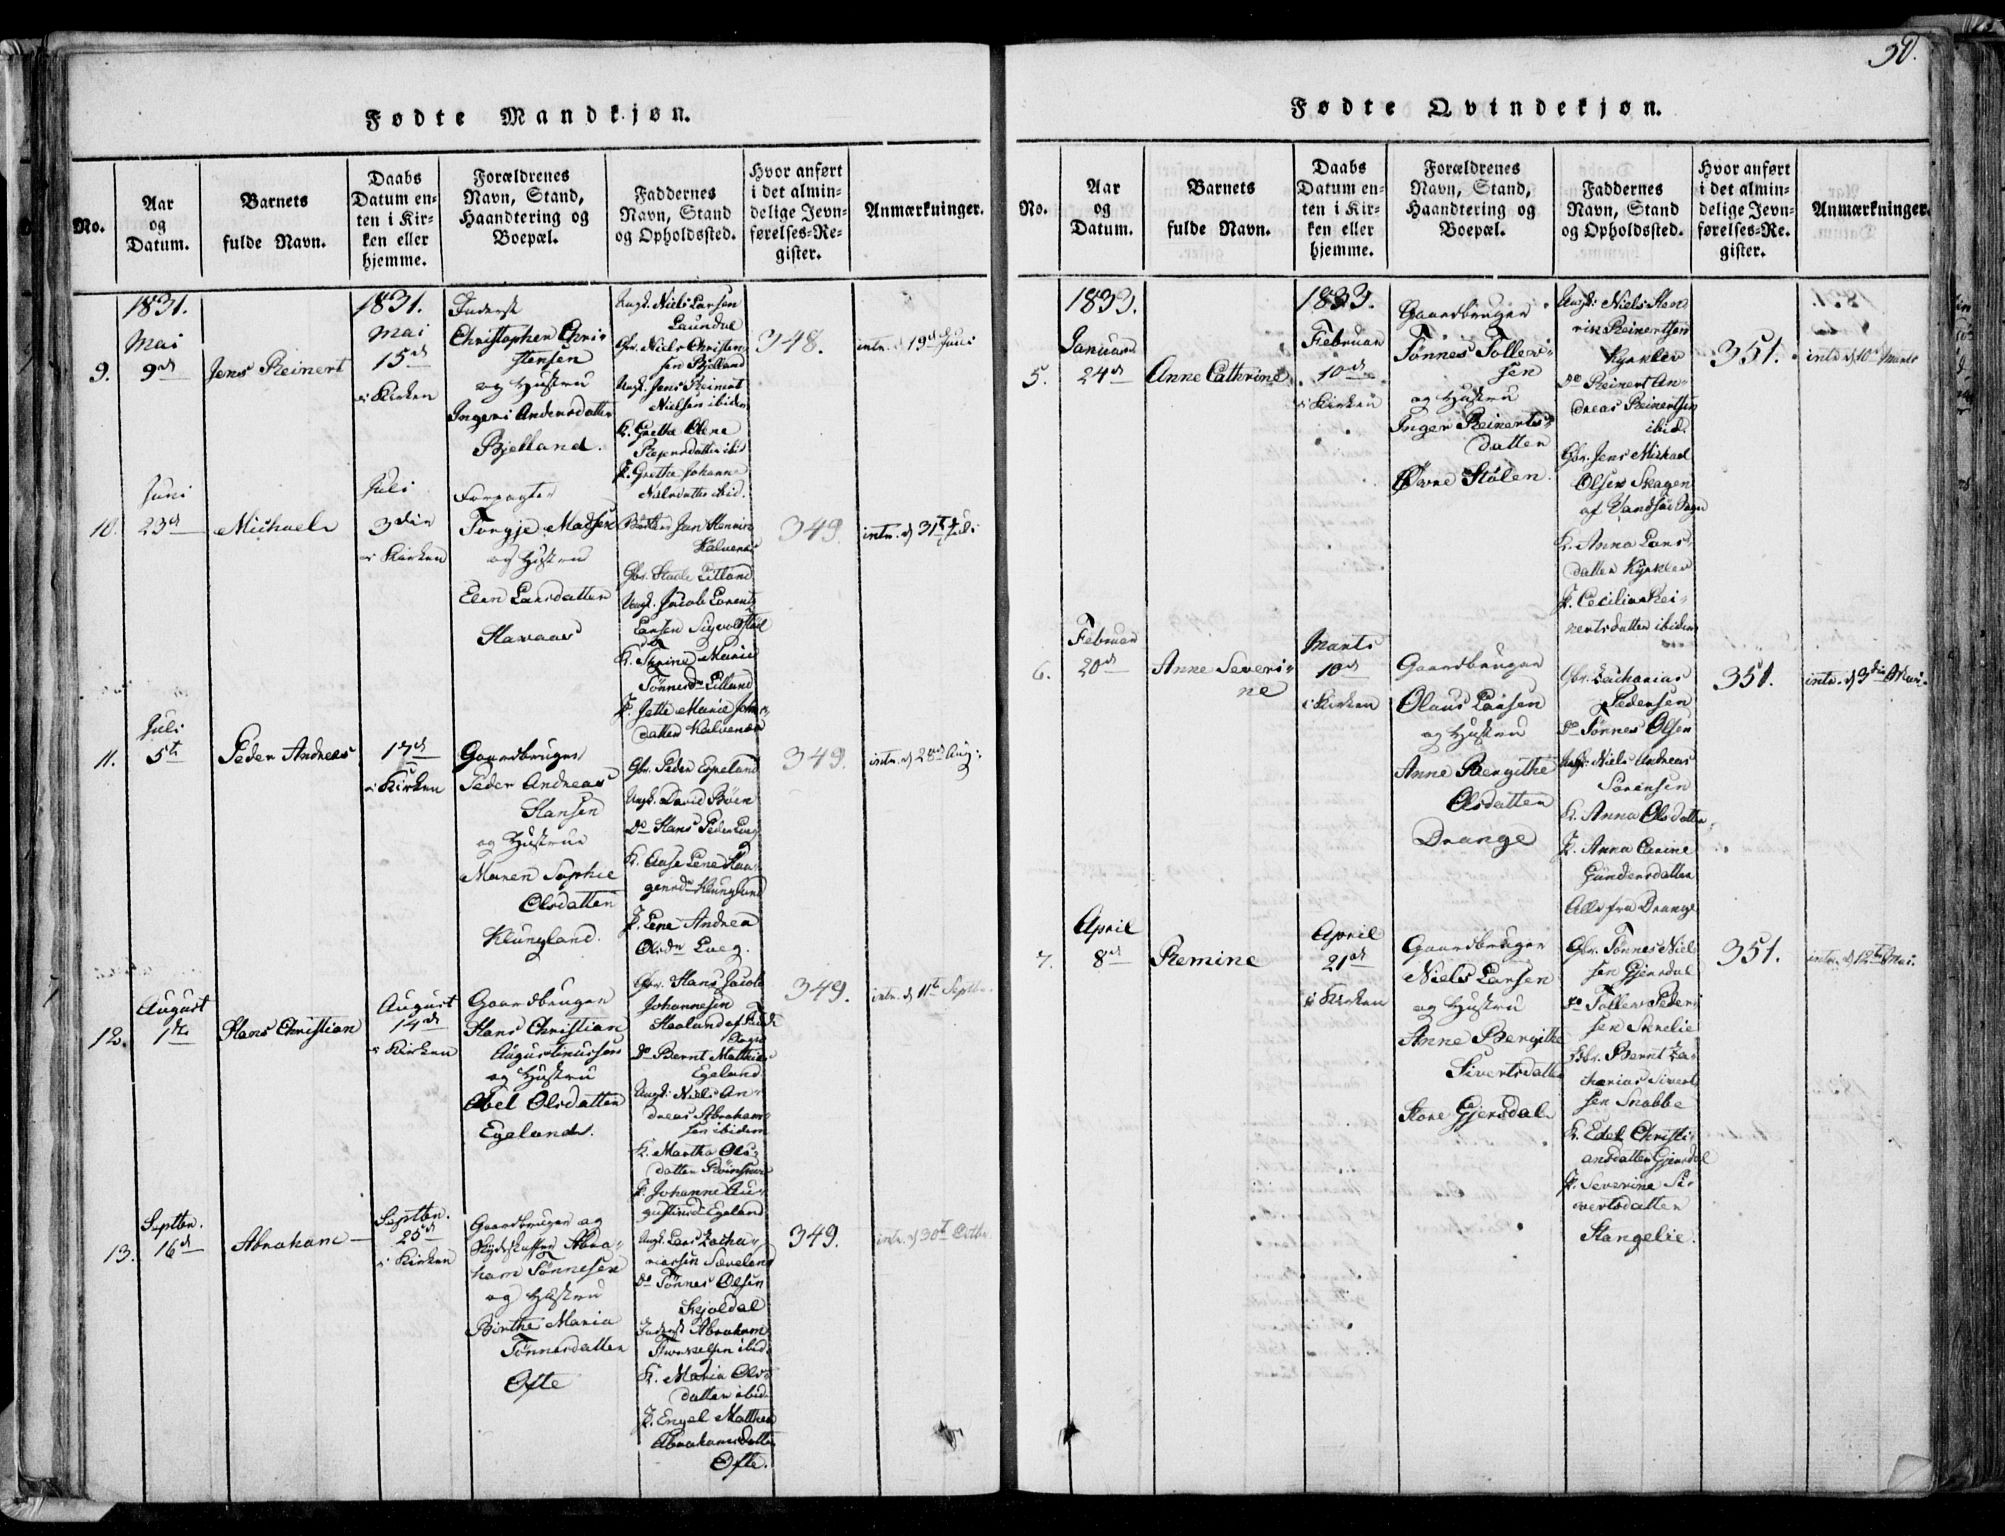 50.
Fødte Mandkjøn.
No.
Aar
og
Datum.
Barnets
fulde Navn.
Daabs
Datum en-
ten i Kir-
ken eller
hjemme.
Forældrenes
Navn, Stand,
Haandtering og
Boepæl.
Faddernes
Navn, Stand
og Opholdssted.
Hvor anført
i det almin-
delige Jevn-
førelses-Re-
gister.
Anmærkninger.
9.
1831.
Mai
9de
Jens Reinert
1831.
Mai
15de
i Kirken
Inderst
Christopher Chri-
stensen
og Hustru
Inger Andersdatter
Bjelland.
Ungk. Niels Larsen
Gbr. Niels Christen-
sen Bjelland
Ungk. Jens Reinert
Nielsen ibidem
K. Grethe Olene
P. Grethe Johanne
Nielsdatter ibid.
348.
intr. d 19de Juni
10.
Juni
23de
Michael
Juli
3die
i Kirken
Forpagter
Torgje Madsen
og Hustru
Elen Larsdatter
Havaas
Jan Henrik
Kalvenes
Gbr. Stade Litland
Ungk. Jacob Lorents
Larsen Sigvoldstad
K. Trine Marie
Tønnesdr. Litland
P. Jette Marie
datter Kalvenes
349.
intr. d 31te Juli
11.
Juli
5te
Peder Andreas
17de
i Kirken
Gaardbruger
Peder Andreas
Hansen
og Hustru
Maren Sophie
Olsdatter
Klungland.
Gbr. Peder Egeland
Ungk. David Böen
Do Hans Peder Lueg
K. Aase Lene Haa-
gensdr Klungland
P. Lene Andrea
Olsdr Lueg.
349.
intr. d 28de Aug:
12.
August
1ste
Hans Christian
August
14de
i Kirken
Gaardbruger
Hans Christian
Augustinussen
og Hustru
Abel Olsdatter
Egeland.
Gbr. Hans Jacob
Johannesen
Haaland af
Sogn
Do Bernt Mathias
Egeland
Ungk. Niels An-
dreas Abraham-
sen ibidem
K. Martha Ols-
datter
P. Johanne Au-
gustinusd. Egeland
349.
intr. d 11te Septbr.
13.
Septbr.
16de
Abraham
Septbr.
25de
i Kirken
Gaardbruger og
Skydsskaffer Abra-
ham Tönnesen
og Hustru
Birthe Maria
Tönnesdatter
Ofte
Ungk. Lars Zacha-
riassen Sæveland
Do Tönnes Olsen
Skjoldal
Inderst Abraham
ibid.
K. Maria Ols-
datter ibid.
P. Engel Mathea
Abrahamsdatter
Ofte.
349.
intr. d 30te Octbr.
Fødte Qvindekjøn.
No.
Aar
og
Datum.
Barnets
fulde Navn.
Daabs
Datum en-
ten i Kir-
ken eller
hjemme.
Forældrenes
Navn, Stand,
Haandtering og
Boepæl.
Faddernes
Navn, Stand
og Opholdssted.
Hvor anført
i det almin-
delige Jevn-
førelses-Re-
gister.
Anmærkninger.
5.
1833.
Januar
24de
Anne Cathrine
1833.
Februar
10de
i Kirken
Gaardbruger
Tønnes Tollev-
sen
og Hustru
Inger Reinerts-
datter
Øvre Stölen.
Ungk: Niels Hen-
rik Reinertsen
Kjrklev
Do Reinert An-
dreas Reinertsen
ibid.
Gbr. Jens Michael
Olsen Skagen
af Vandsöe Sogn
K. Anna Lars-
datter Kjrklev
P. Cecilia Rei-
nertsdatter ibidem
351.
intr d 10de Marts
6.
Februar
20de
Anne Severi-
ne
Marts
10de
i Kirken
Gaardbruger
Olaus Larsen
og Hustru
Anne Bergithe
Olsdatter
Drange
Gbr. Zacharias
Pedersen
Do Tönnes Olsen
Ungk: Niels Andreas
Sörensen
K. Anna Olsdatter
P. Anna Carine
Gundersdatter
Alle fra Drange
351.
intr. d 3die
7.
April
8de
Remine
April
21de
i Kirken
Gaardbruger
Niels Larsen
og Hustru
Anne Bergithe
Sivertsdatter
Store Gjersdal
Gbr. Tønnes Niel-
sen Gjersdal
Do Tollev Peder-
sen
Gbr. Bernt Za-
charias Sivert-
sen Snabbe
K. Edel Christi-
ansdatter Gjersdal
P. Severine Si-
vertsdatter
Stangelie.
351.
intr. d 12te Mai.